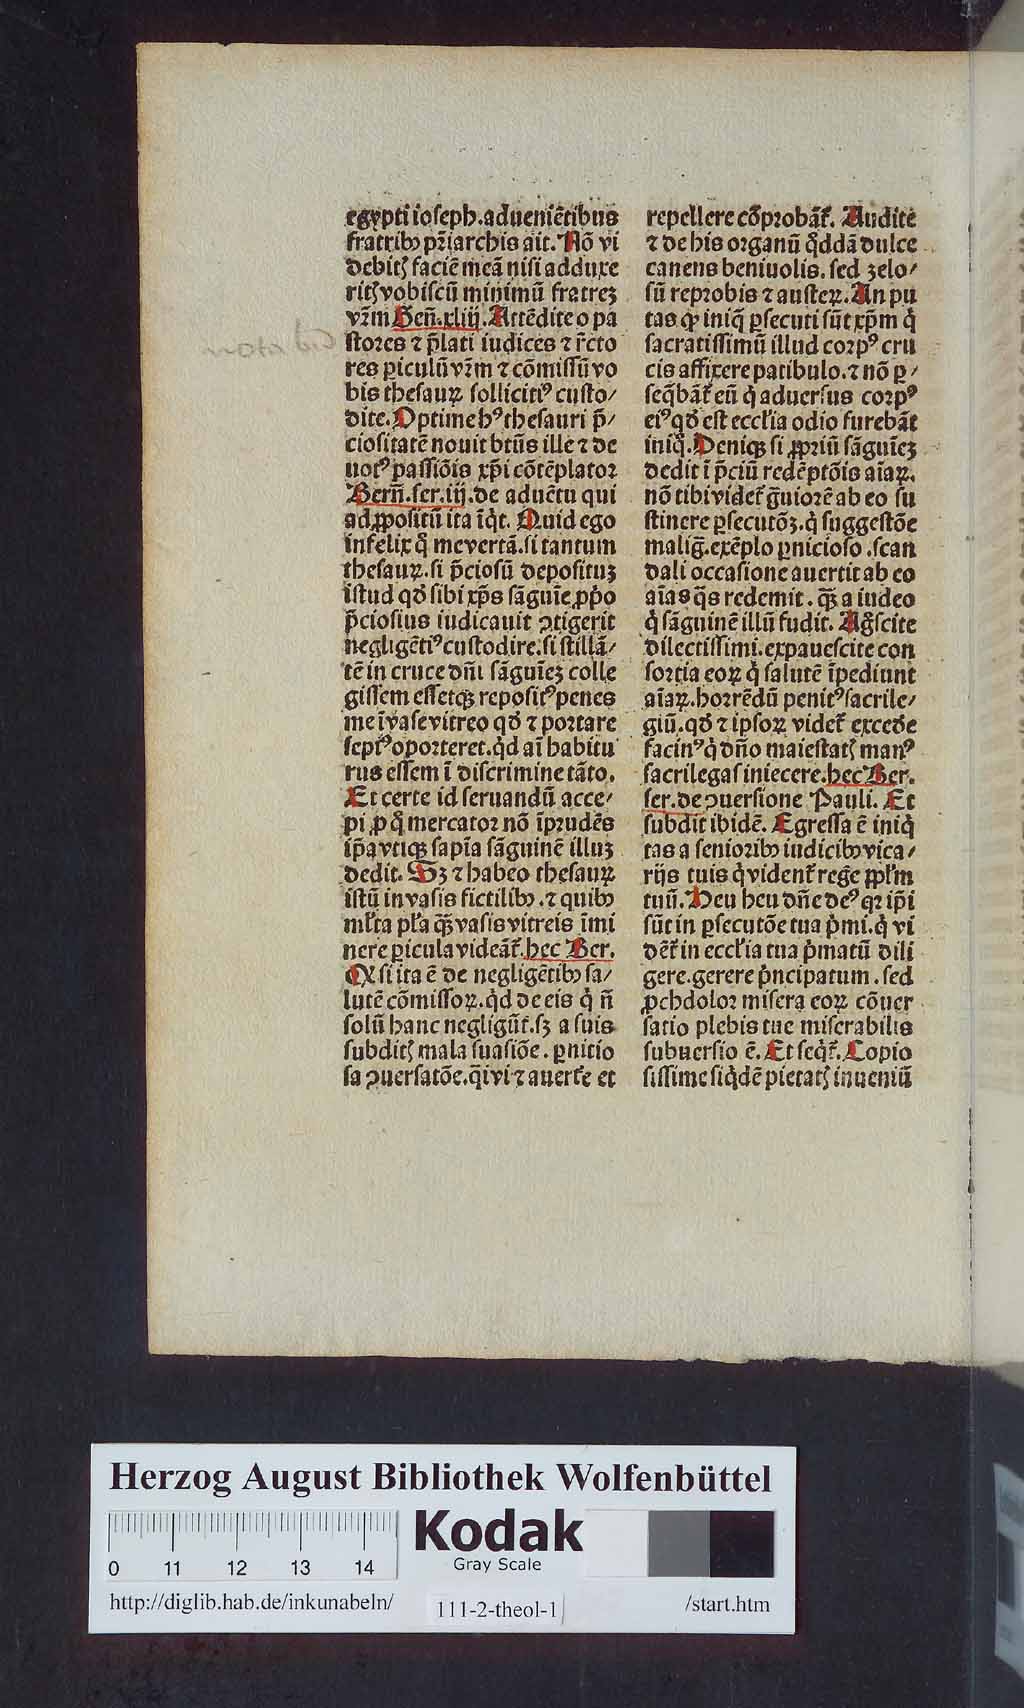 egypti ioseph.adueniẽtibus
fratribꝫ pr̃iarchis ait. Nõ vi
debitꝭ faciẽ meã nisi adduxe
ritꝭ vobiscũ minimũ fratreʒ
vr̃m Geñ.xliij. Attẽdite o pa
stores ⁊ p̃lati iudices ⁊ r̃cto
res ꝑiculũ vr̃m ⁊ cõmissũ vo
bis thesauꝝ sollicitiꝰ custo⸗
dite. Optime hꝰ thesauri p̃⸗
ciositatẽ nouit btũs ille ⁊ de
uotꝰ passiõis xp̃i cõtẽplator
Berñ.ser.iij.de aduẽtu qui
ad ꝓpositũ ita ĩqͥt. Quid ego
infelix qͦ me vertã.si tantum
thesauꝝ.si p̃ciosũ depositũʒ
istud qď sibi xp̃s sãguĩe ꝓpͥo
p̃ciosius iudicauit ꝯtigerit
negligẽtiꝰ custodire.si stillã⸗
tẽ in cruce dñi sãguĩeʒ colle
gissem essetqꝫ repositꝰ penes
me ĩ vase vitreo qď ⁊ portare
sept̃ꝰ oporteret.qͥd aĩ habitu
rus essem ĩ discrimine tãto.
Et certe id seruandũ acce⸗
pi ꝓ qͦ mercator nõ ĩprudẽs
ip̃a vtiqꝫ sapĩa sãguinẽ illuʒ
dedit. Sʒ ⁊ habeo thesauꝝ
istũ in vasis fictilibꝫ.⁊ quibꝫ
ml̃ta pl̃a qꝫ̃ vasis vitreis ĩmi
nere ꝑicula videãt̃.hec Ber.
Qꝫ si ita ẽ de negligẽtibꝫ sa⸗
lutẽ cõmissoꝝ.qͥd de eis qͥ ñ
solũ hanc negligũt̃.sʒ a suis
subditꝭ mala suasiõe.ꝑnitio
sa ꝯuersatõe.q̃ĩvi ⁊ auert̃e et
repellere cõprobãt̃. Audite
⁊ de his organũ qͦddã dulce
canens beniuolis.sed zelo⸗
sũ reprobis ⁊ austeꝝ. An pu
tas qꝫ iniq̃ ꝑsecuti sũt xp̃m qͥ
sacratissimũ illud corpꝰ cru
cis affixere patibulo.⁊ nõ ꝑ⸗
seq̃bãt̃ eũ qͥ aduersus corpꝰ
eiꝰ qď est eccl̃ia odio furebãt
iniqͦ. Deniqꝫ si ꝓpriũ sãguĩeʒ
dedit ĩ p̃ciũ redẽptõis aĩaꝝ.
nõ tibi videt̃ g̃uiorẽ ab eo su
stinere ꝑsecutõʒ.qͥ suggestõe
malig̃.exẽplo ꝑnicioso.scan
dali occasione auertit ab eo
aĩas q̃s redemit.qꝫ̃ a iudeo
qͥ sãguinẽ illũ fudit. Ag̃scite
dilectissimi.expauescite con
sortia eoꝝ qͥ salutẽ ĩpediunt
aĩaꝝ.horrẽdũ penitꝰ sacrile⸗
giũ.qď ⁊ ipsoꝝ videt̃ excede
facinꝰ qͥ dño maiestatꝭ manꝰ
sacrilegas iniecere.hec Ber.
ser.de ꝯuersione Pauli. Et
subdit ibidẽ. Egressa ẽ iniqͥ
tas a senioribꝫ iudicibꝫ vica⸗
rijs tuis qͥ vident̃ rege ppl̃m
tuũ. Heu heu dñe deꝰ qꝛ ip̃i
sũt in ꝑsecutõe tua pͥmi.qͥ vi
dẽt̃ in eccl̃ia tua pͥmatũ dili
gere.gerere pͥncipatum.sed
ꝓchdolor misera eoꝝ cõuer
satio plebis tue miserabilis
subuersio ẽ. Et seqͥt̃. Copio
sissime siqͥdẽ pietatꝭ inueniũ
Herzog August Bibliothek Wolfenbüttel
0 11 12 13 14
Kodak
Gray Scale
http://diglib.hab.de/inkunabeln/
111-2-theol-1
/start.htm